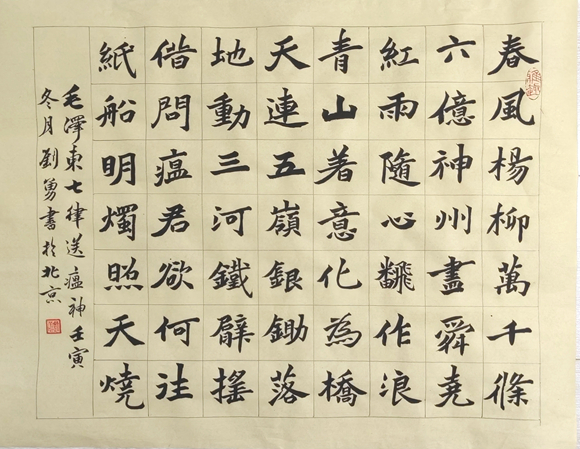 春風楊柳萬千條
六億神州盡舜堯
紅雨隨心飜作浪
青山著意化為橋
天連五嶺銀鋤落
地動三河鐵臂搖
借問瘟君欲何往
紙船明燭照天燒
毛澤東七律送瘟神壬寅
冬月劉勇書於北京